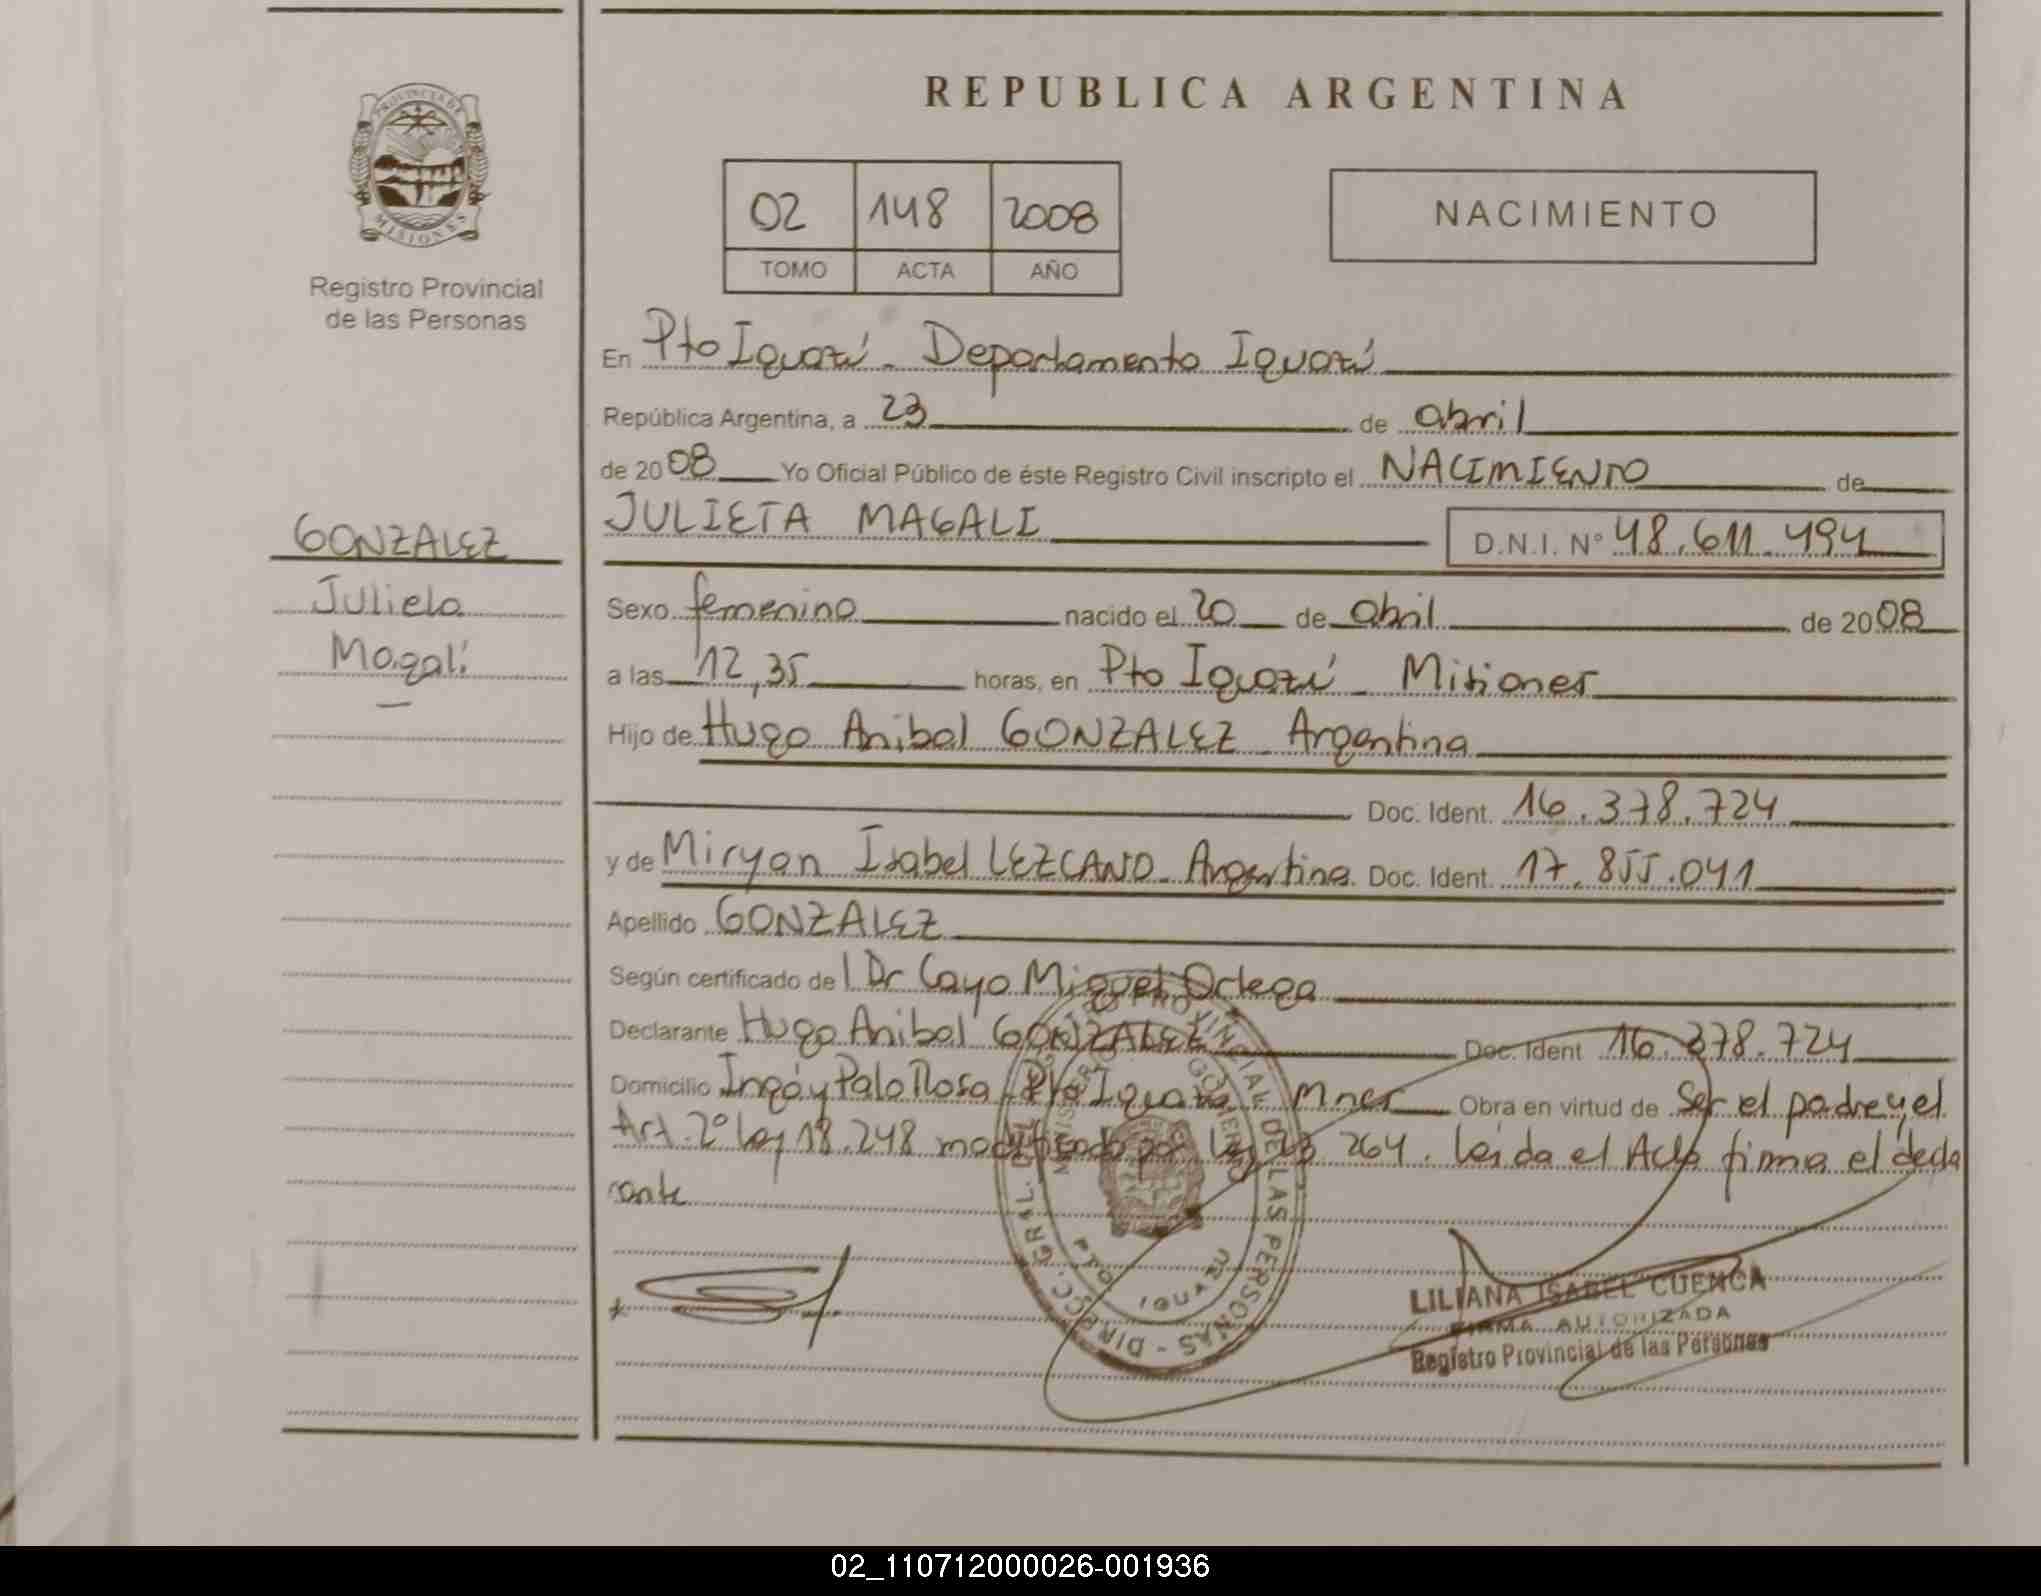 REPUBLICA ARGENTINA
PROVINCIA DE
MISIONES
Registro Provincial
de las Personas
02 148 2008
TOMO ACTA AÑO
NACIMIENTO
En Pto Iguazú - Departamento Iguazú
República Argentina, a 23 de abril
de 2008 Yo Oficial Público de éste Registro Civil inscripto el NACIMIENTO de
JULIETA MAGALI D.N.I. N° 48.611.494
GONZALEZ
Julieta
Magalí
Sexo femenino nacido el 20 de abril de 2008
a las 12,35 horas, en Pto Iguazú - Misiones
Hijo de Hugo Anibal GONZALEZ - Argentina
Doc. Ident. 16.378.724
y de Miryan Isabel LEZCANO - Argentina. Doc. Ident. 17.855.041
Apellido GONZALEZ
Según certificado de l Dr Cayo Miguel Ortega
Declarante Hugo Anibal GONZALEZ Doc. Ident 16.378.724
Domicilio Ingá y Palo Rosa - Pto Iguazú - Mnes Obra en virtud de Ser el padre y el
Art. 2° Ley 18.248 modificado por Ley 23 264. Leída el Acta firma el decla
rante
DIRECC. GRAL. DEL REGISTRO PROVINCIAL DE LAS PERSONAS
MINISTERIO GOBIERNO
PTO IGUAZU
LILIANA ISABEL CUENCA
FIRMA AUTORIZADA
Registro Provincial de las Personas
02_110712000026-001936